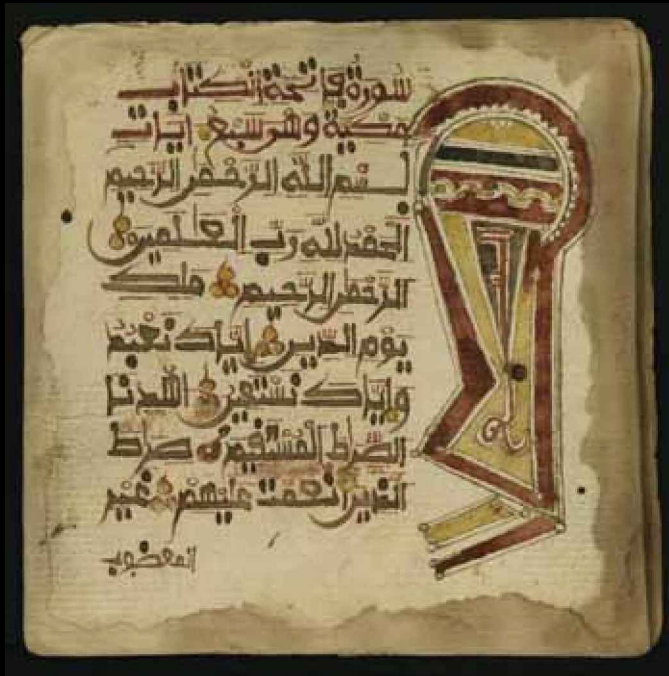 سورة فاتحة الكتاب
مكية وهي سبع ايات
بسم الله الرحمن الرحيم
الحمد لله رب العلمين
الرحمن الرحيم ملك
يوم الدين اياك نعبد
واياك نستعين اهدنا
الصراط المستقيم صراط
الذين انعمت عليهم غير
المغضوب